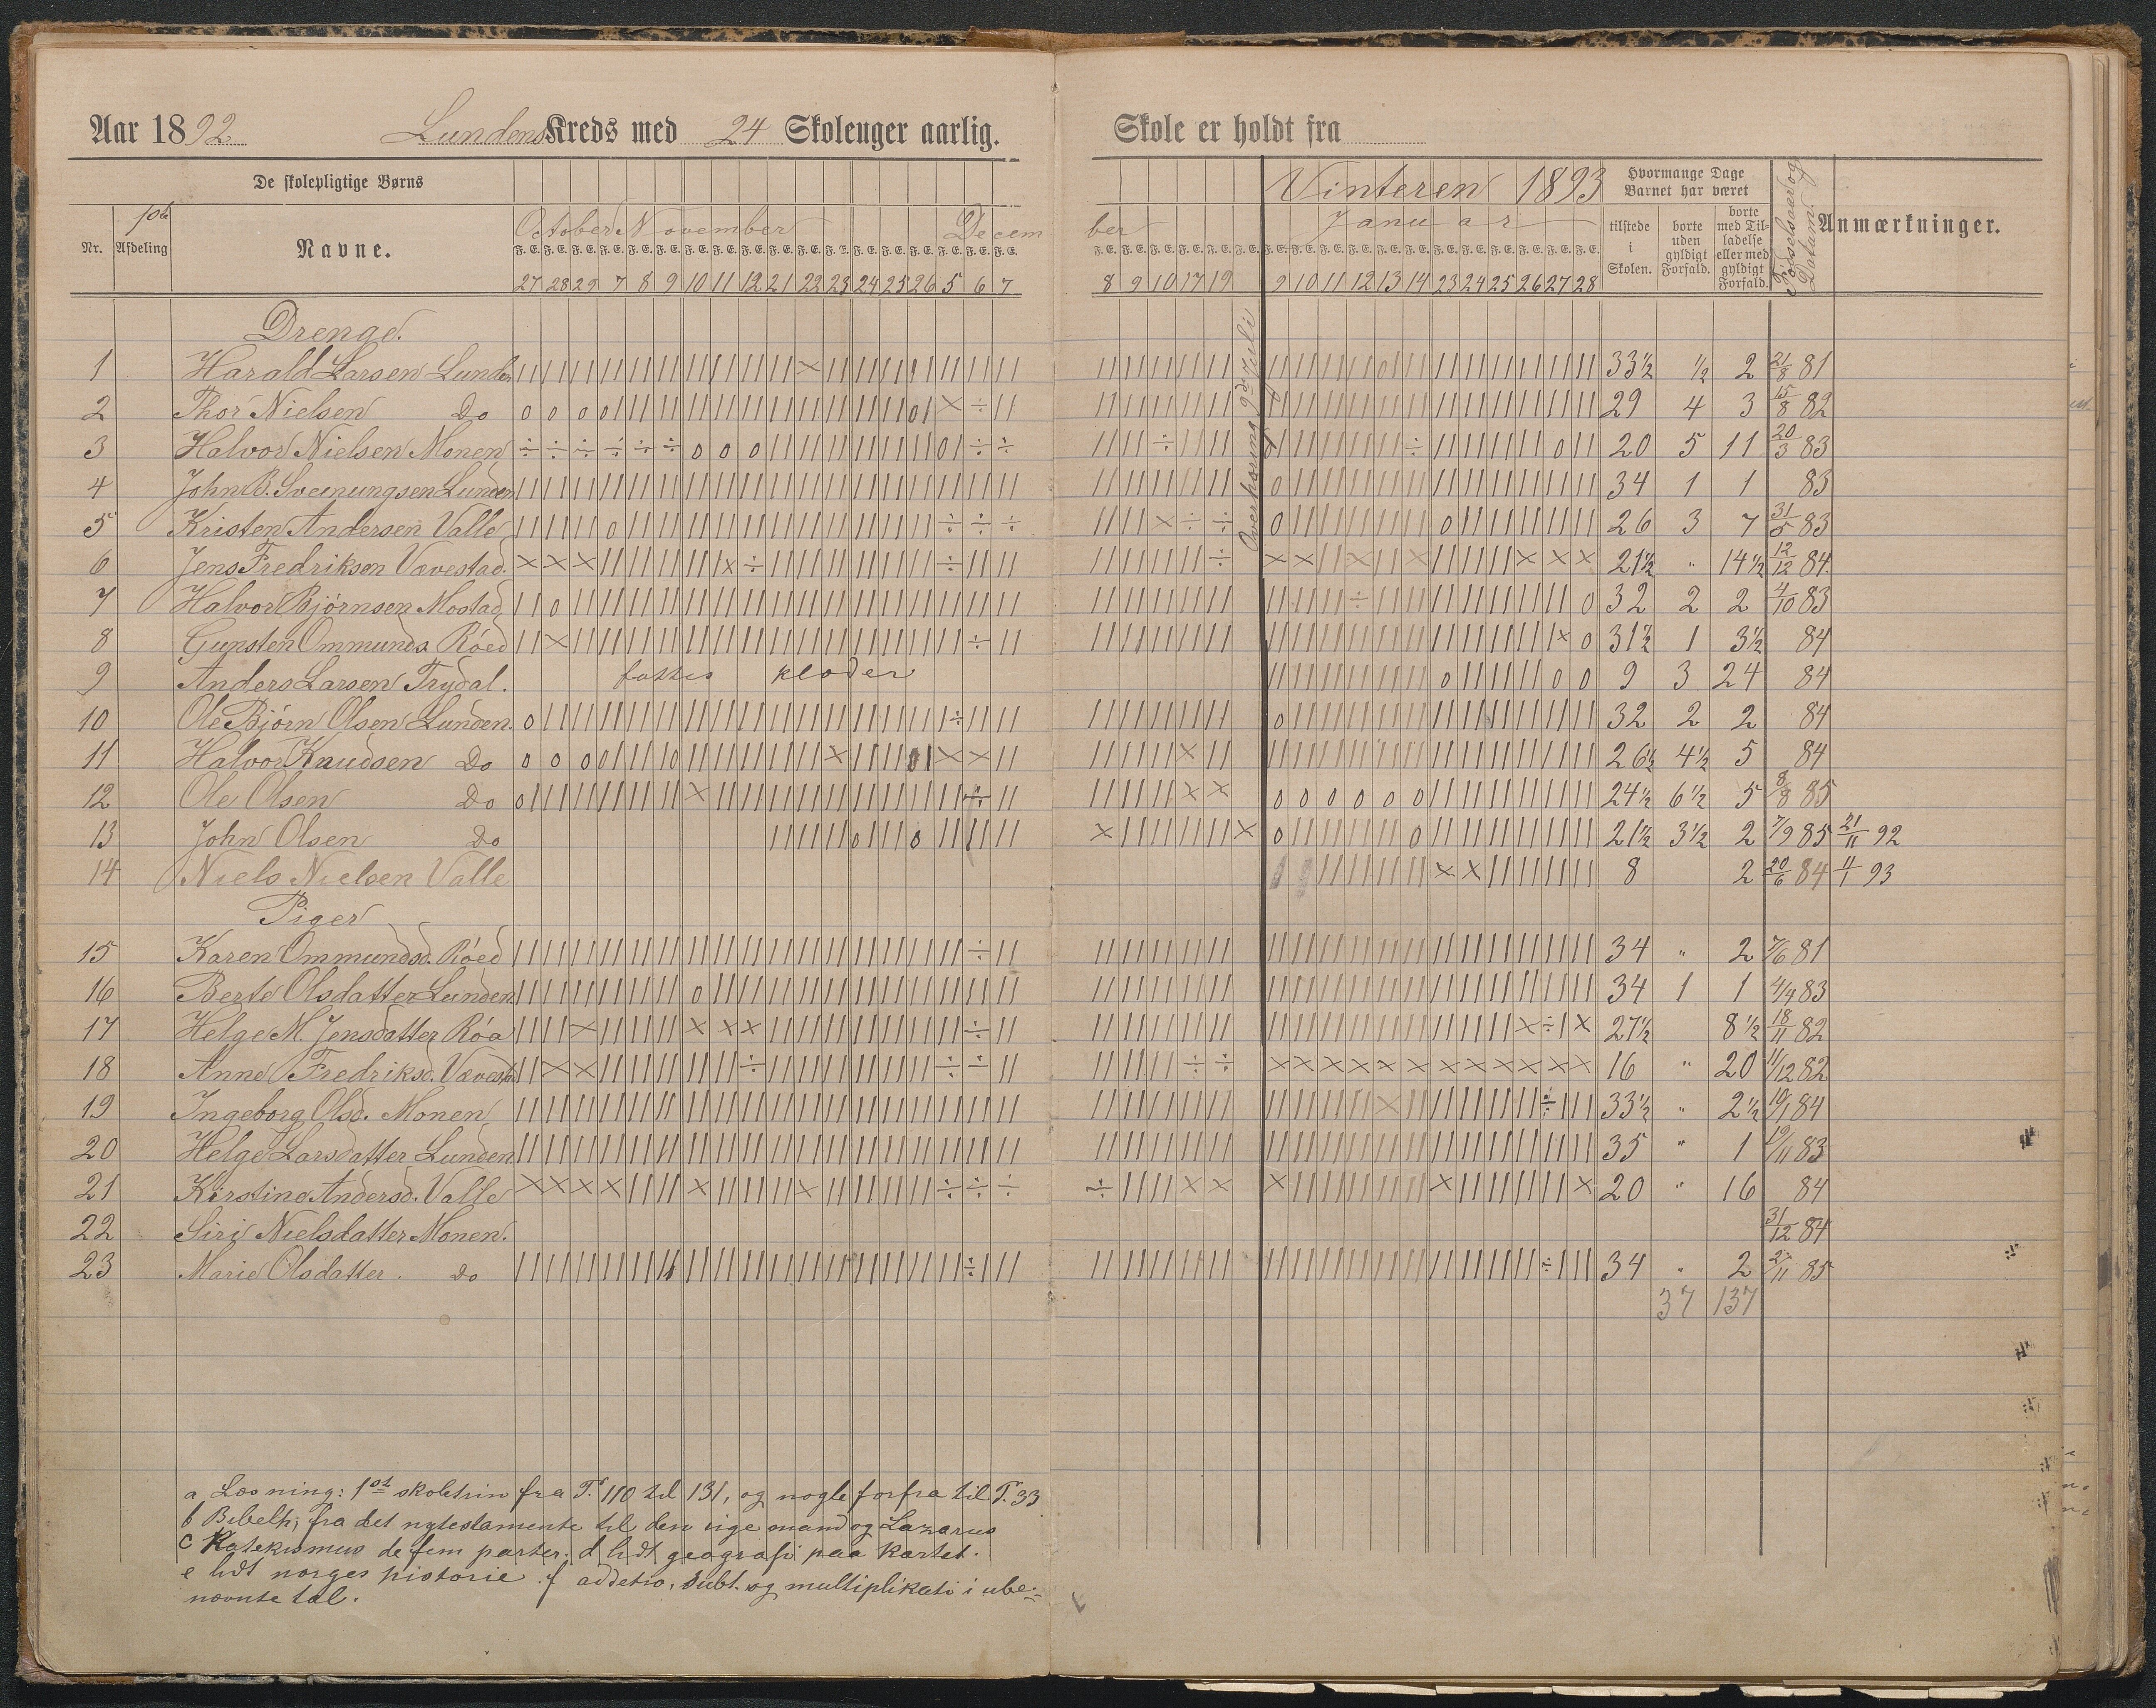 Aar 1892 Lundens Kreds med 24 Skoleuger aarlig.
De skolepligtige Børns
Nr. 1ste Afdeling Navne.
October November Decem
F. E. F. E. F. E. F. E. F. E. F. E. F. E. F. E. F. E. F. E. F. E. F. E. F. E. F. E. F. E. F. E. F. E. F. E.
27 28 29 7 8 9 10 11 12 21 22 23 24 25 26 5 6 7
Skole er holdt fra
Vinteren 1893
ber Januar
8 9 10 17 19 9 10 11 12 13 14 23 24 25 26 27 28
Hvormange Dage Barnet har været
tilstede i Skolen.
borte uden gyldigt Forfald.
borte med Tilladelse eller med gyldigt Forfald.
Fødselsaar og Datum.
Anmærkninger.
Overhøring 9de Juli
Drenge.
1 Harald Larsen Lunden 33½ ½ 2 21/8 81
2 Thor Nielsen Do 29 4 3 15/8 82
3 Halvor Nielsen Monen 20 5 11 20/3 83
4 John B. Sveinungsen Lunden 34 1 1 83
5 Kristen Andersen Valle 26 3 7 31/5 83
6 Jens Fredriksen Vævestad. 21½ " 14½ 12/12 84
7 Halvor Bjørnsen Mostad 32 2 2 4/10 83
8 Gunsten Ommunds. Röed 31½ 1 3½ 84
9 Anders Larsen Trydal. fattes klæder 9 3 24 84
10 Ole Bjørn Olsen Lunden. 32 2 2 84
11 Halvor Knudsen Do 26½ 4½ 5 84
12 Ole Olsen Do 24½ 6½ 5 8/8 85
13 John Olsen Do 21½ 3½ 2 7/9 85 21/11 92
14 Niels Nielsen Valle 8 2 20/6 84 4/1 93
Piger
15 Karen Ommundsd. Röed 34 " 2 7/6 81
16 Berte Olsdatter Lunden 34 1 1 4/9 83
17 Helge M. Jensdatter Röa 27½ 8½ 18/11 82
18 Anne Fredriksd. Vævestad 16 " 20 11/12 82
19 Ingeborg Olsd. Monen 33½ " 2½ 19/1 84
20 Helge Larsdatter Lunden 35 " 1 19/11 83
21 Kirstine Andersd. Valle 20 " 16 84
22 Siri Nielsdatter Monen. 31/12 84
23 Marie Olsdatter. Do 34 " 2 2/11 85
37 137
a Læsning: 1ste skoletrin fra T. 110 til 131, og nogle forfra til T. 33
b Bibelh; fra det nytestamente til den rige mand og Lazarus
c Katekismus de fem parter. d lidt geografi paa kartet.
e lidt norges historie. f addetio, subt. og multiplikati i ube-
nævnte tal.